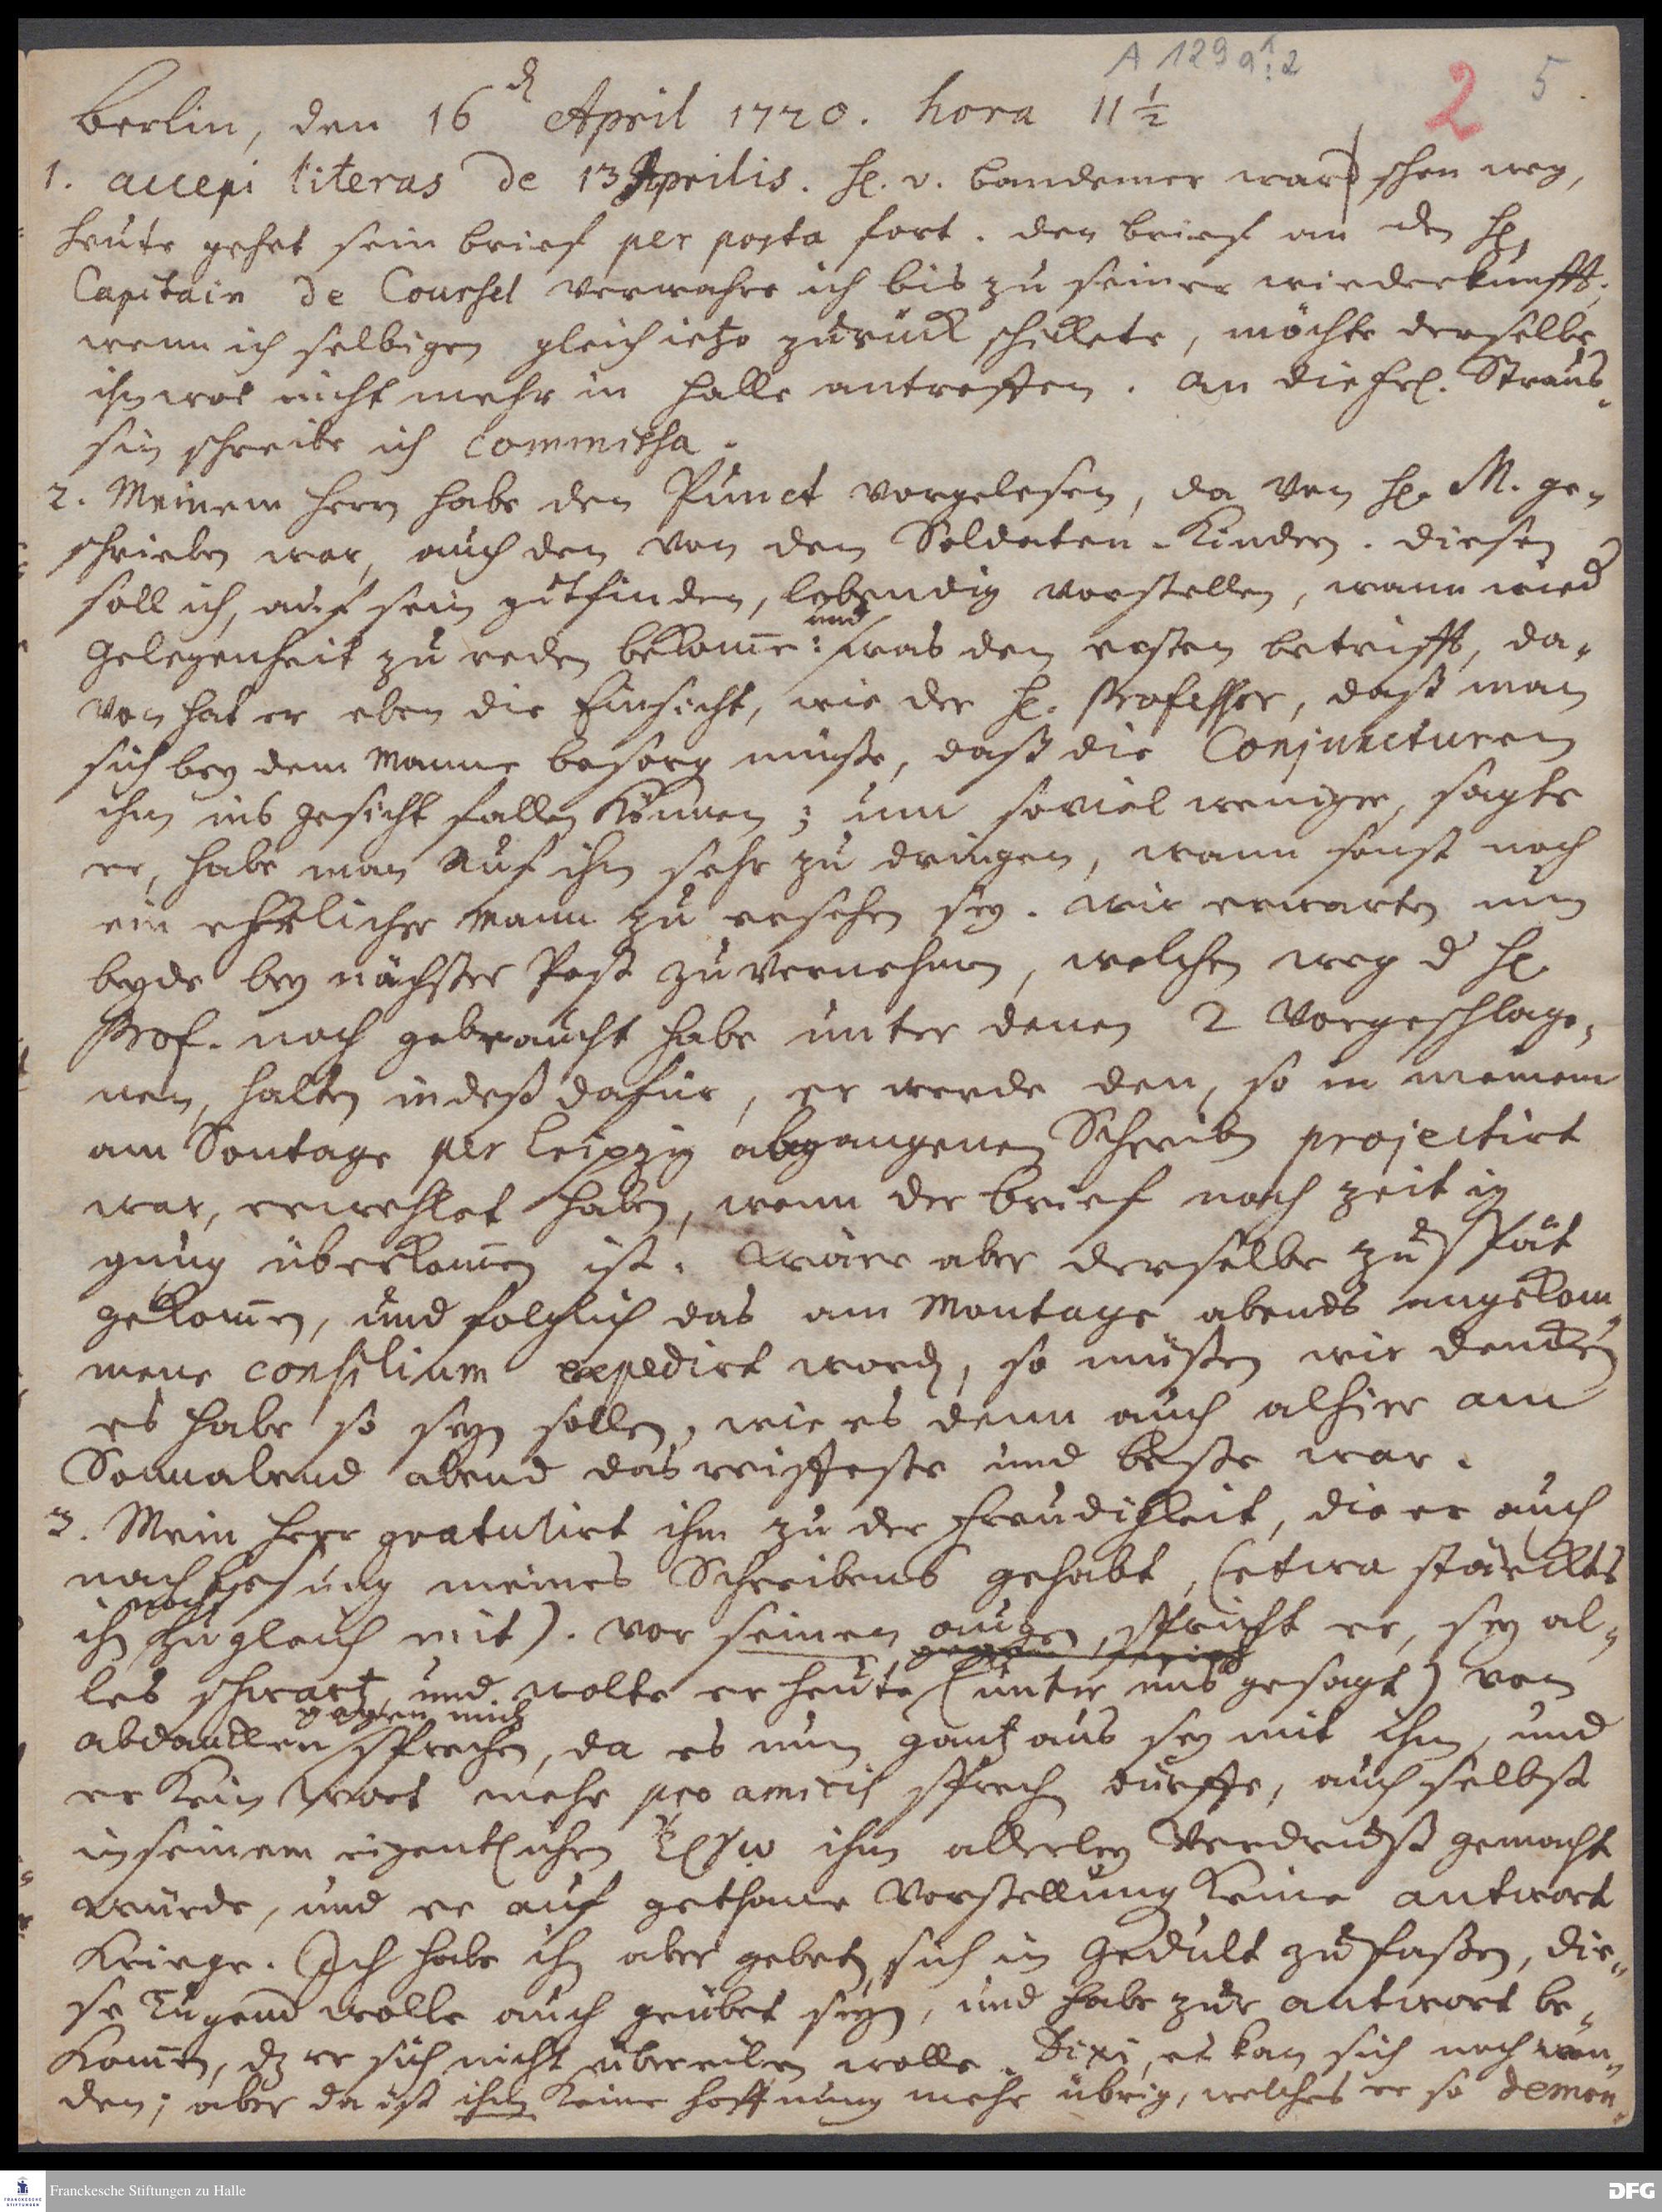 A 129 a : 2
2 5
Berlin, den 16 April 1720. hora 11 ½
1. accepi literas de 13 Aprilis. H. v. Bandemer war schon weg,
heute gehet sein brief per posta fort. den brief an den H.
Capitain de Courhel verwahre ich bis zu seiner wiederkunfft;
wenn ich selbigen gleich ietzo zurück schickete, möchte derselbe
ihn wol nicht mehr in Halle antreffen. an die Frl. Straus-
sin schreibe ich commissa.
2. Meinem Herrn habe den Punct vorgelesen, da von H. M. ge-
schrieben war, auch den von den Soldaten-Kindern. diesen
soll ich, auf sein gutfinden, lebendig vorstellen, wann wied
Gelegenheit zu reden bekomme: und was den ersten betrifft, da-
von hat er eben die Einsicht, wie der H. Professor, daß man
sich bey dem Manne besorgen müsse, daß die Conjuncturen
ihm ins gesicht fallen können; um soviel weniger, sagte
er, habe man auf ihn sehr zu dringen, wann sonst noch
ein ehrlicher Mann zu ersehen sey. wir erwarten nun
beyde bey nächster Post zu vernehmen, welchen weg d H.
Prof. noch gebraucht habe unter denen 2 vorgeschlage-
nen, halten indeß dafür, er werde den, so in meinem
am Sontage per Leipzig abgangenen Schreiben projectirt
war, erwehlet haben, wenn der brief noch zeitig
gnug überkommen ist. Wäre aber derselbe zu spät
gekommen, und folglich das am Montage abends angekom-
mene consilium expedirt worden, so müssen wir dencken
es habe so seyn sollen, wie es denn auch alhier am
Sonnabend abend das reiffeste und beste war.
3. Mein Herr gratulirt ihm zu der Freudigkeit, die er auch
nach Lesung meines Schreibens gehabt, (etwa stärckts
ihn noch zugleich mit). vor seinen augen, spricht er, sey al-
les schwartz, und wolte er heute (unter uns gesagt) vom
abdancken gegen mich sprechen, da es nun gantz aus sey mit ihm, und
er kein wort mehr pro amicis sprechen dürffe, auch selbst
in seinem eigentlichen ihm allerley Verdruß gemacht
würde, und er auf gethane Vorstellung keine antwort
kriege. Ich habe ihn aber gebeten, sich in Gedult zu fassen, die-
se Tugend wolle auch geübet seyn, und habe zur antwort be-
kommen, dz er sich nicht übereilen wolle. Dixi, es kan sich noch wen-
den; aber da ist ihm keine hoffnung mehr übrig, welches er so demon-
Franckesche Stiftungen zu Halle
DFG